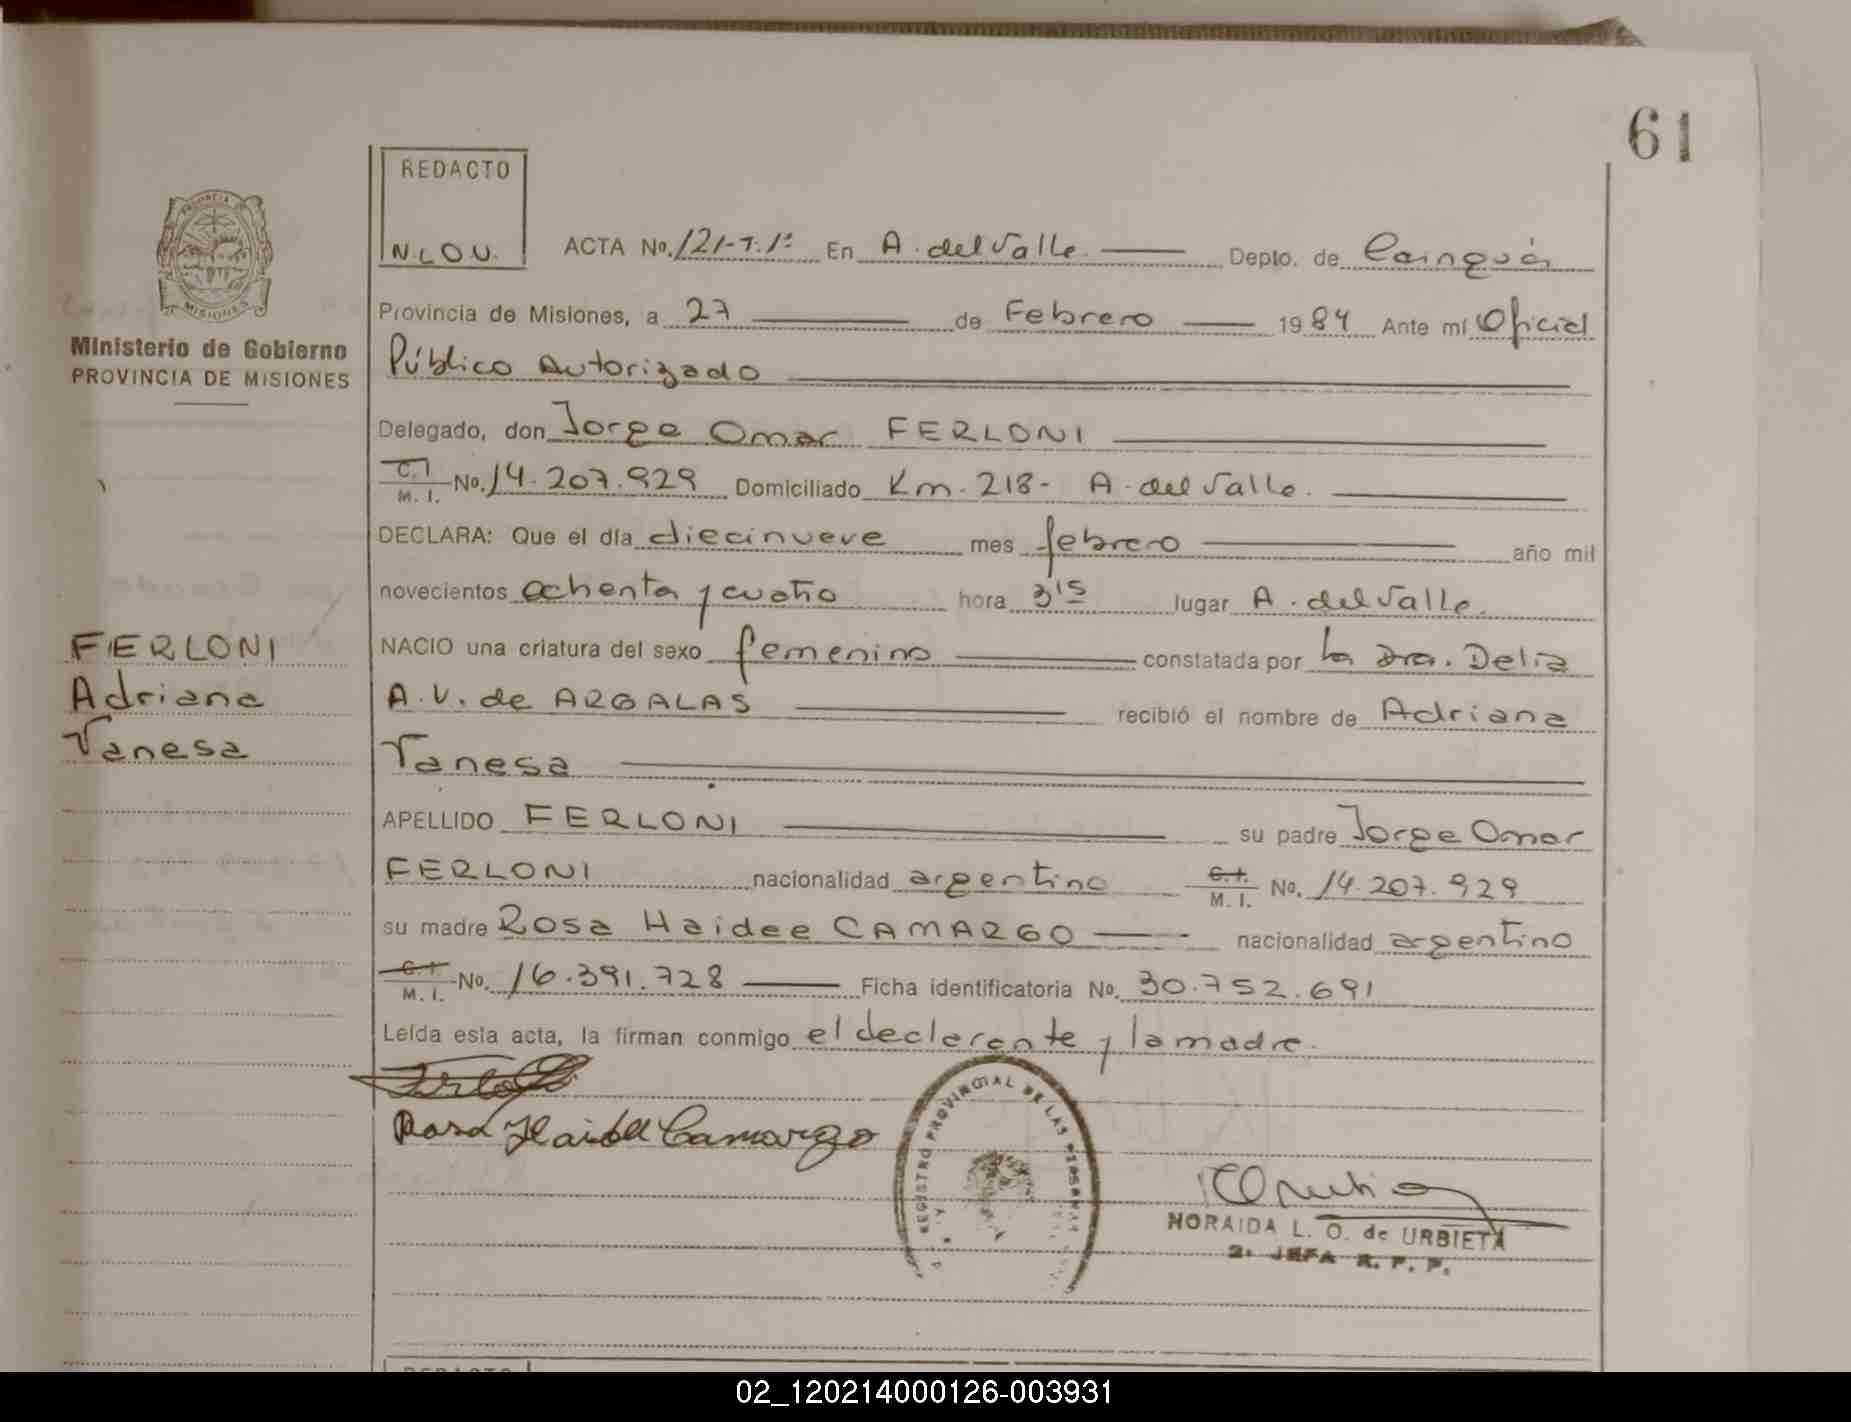 61
REDACTO
N.L.O.U.
ACTA No. 121-T.1º En A. del Valle Depto. de Cainguás
Provincia de Misiones, a 27 de Febrero 1984 Ante mí Oficial
Público Autorizado
Delegado, don Jorge Omar FERLONI
C.I. M. I. No. 14.207.929 Domiciliado Km. 218- A. del Valle.
DECLARA: Que el día diecinueve mes febrero año mil
novecientos ochenta y cuatro hora 3'15 lugar A. del Valle.
NACIO una criatura del sexo femenino constatada por la Dra. Delia
A.V. de ARGALAS recibió el nombre de Adriana
Vanesa
APELLIDO FERLONI su padre Jorge Omar
FERLONI nacionalidad argentino C.I. M. I. No. 14.207.929
su madre Rosa Haidee CAMARGO nacionalidad argentino
C.I. M. I. No. 16.391.728 Ficha identificatoria No. 30.752.691
Leída esta acta, la firman conmigo el declarente y la madre.
Rosa Haidee Camargo
REGISTRO PROVINCIAL DE LAS PERSONAS
NORAIDA L. O. de URBIETA
2º JEFA R. P. P.
PROVINCIA DE
MISIONES
Ministerio de Gobierno
PROVINCIA DE MISIONES
FERLONI
Adriana
Vanesa
REDACTO
02_120214000126-003931